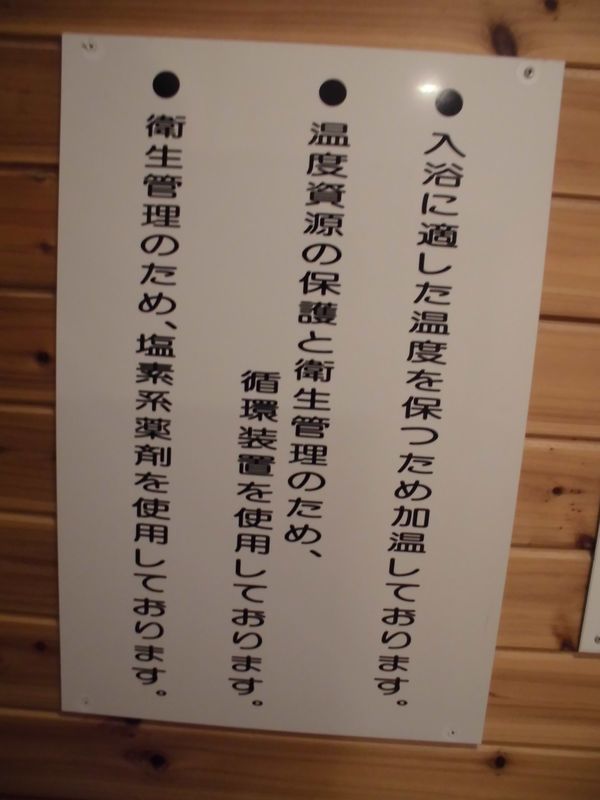 ●入浴に適した温度を保つため加温しております。
●温度資源の保護と衛生管理のため、
循環装置を使用しております。
●衛生管理のため、塩素系薬剤を使用しております。